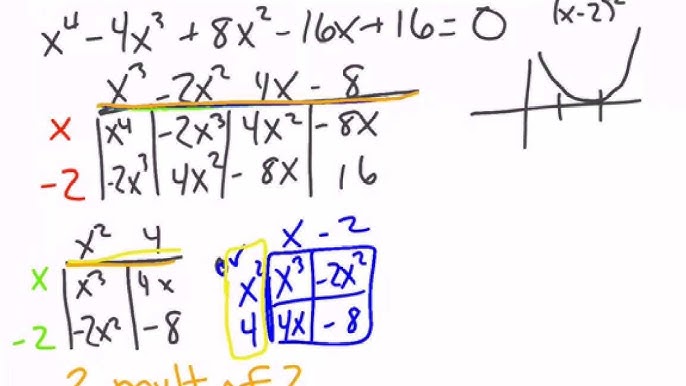 x⁴ - 4x³ + 8x² - 16x + 16 = 0
(x-2)²
x³ - 2x² 4x - 8
x x⁴ -2x³ 4x² -8x
-2 -2x³ 4x² -8x 16
x² 4
x x³ 4x
-2 -2x² -8
or
x - 2
x² x³ -2x²
4 4x -8
2 mult of 2